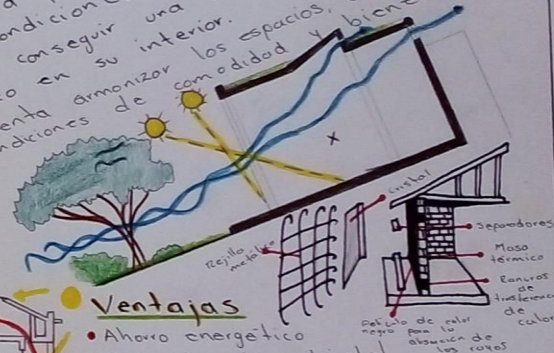 ondición
conseguir una
o en su interior.
enta armonizar los espacios,
ndiciones de comodidad y biene
x
cristal
Rejilla metálica
Separadores
Masa térmico
Ranuras de transferencia de calor
Película de calor negro para la absorción de los rayos
Ventajas
• Ahorro energético